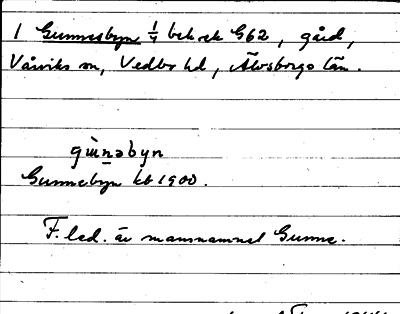 1 Gunnesbyn 1/4 bek ek G62, gård,
Vårviks sn, Vedbo hd, Älvsborgs län.
gùnəbyn
Gunnebyn kb 1900.
F. led. är mansnamnet Gunne.